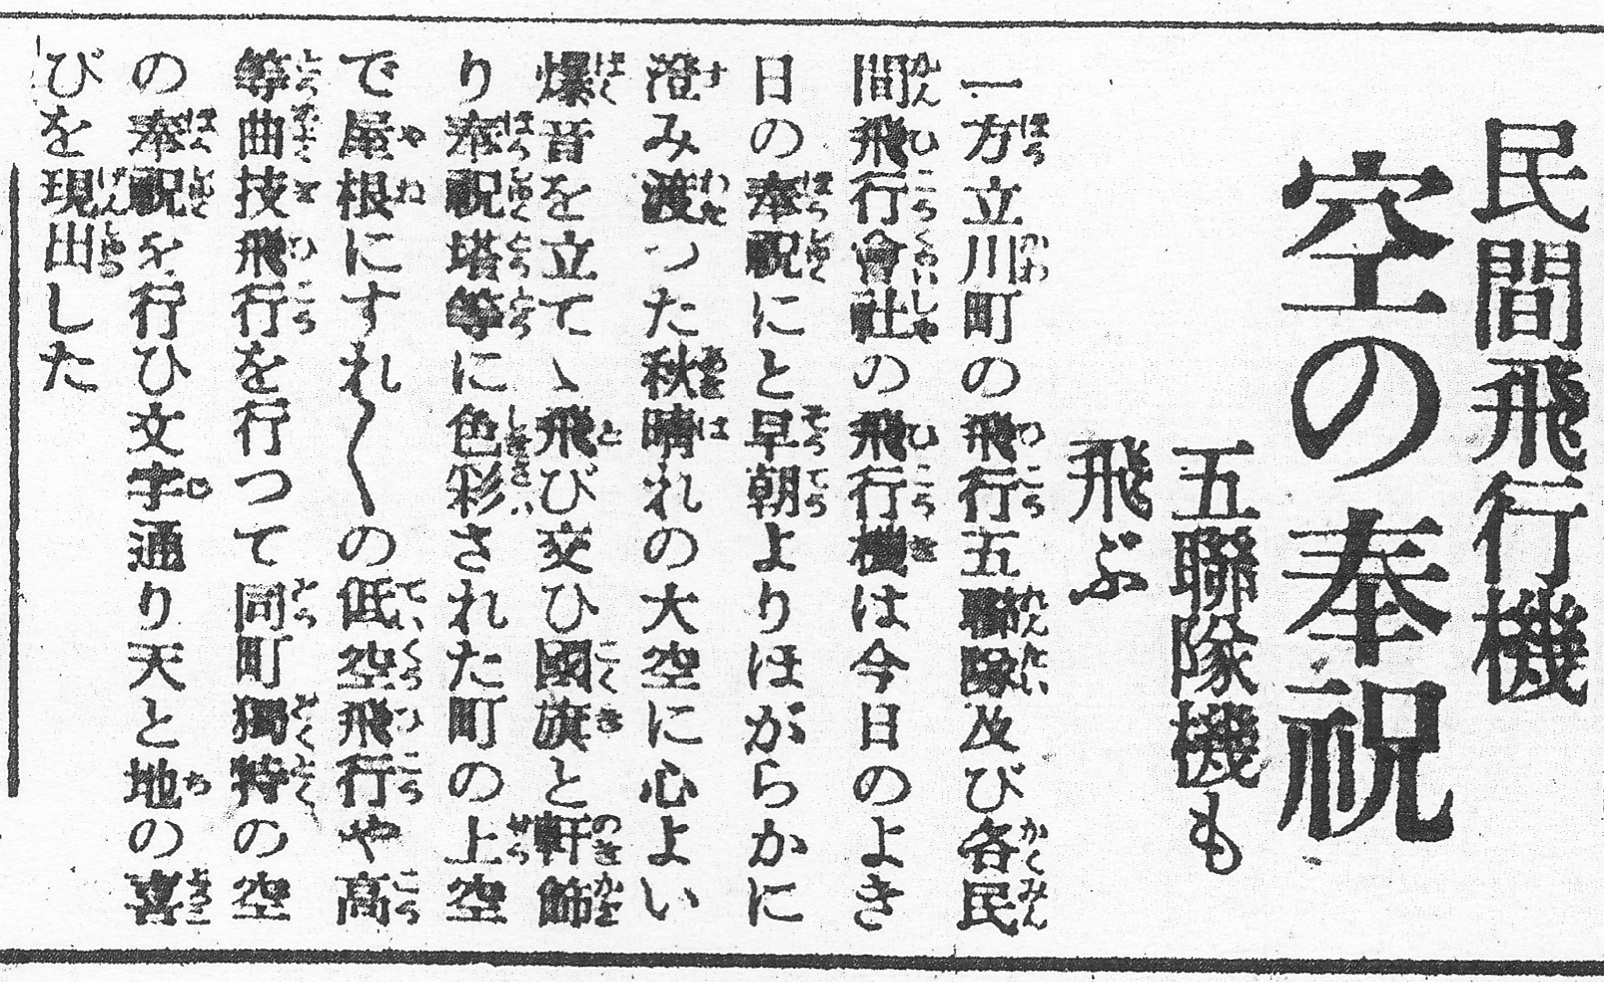 民間飛行機
空の奉祝
五聯隊機も
飛ぶ
一方立川町の飛行五聯隊及び各民
間飛行會社の飛行機は今日のよき
日の奉祝にと早朝よりほがらかに
澄み渡つた秋晴れの大空に心よい
爆音を立てゝ飛び交ひ國旗と軒飾
り奉祝塔等に色彩された町の上空
で屋根にすれ〱の低空飛行や高
等曲技飛行を行つて同町獨特の空
の奉祝を行ひ文字通り天と地の喜
びを現出した